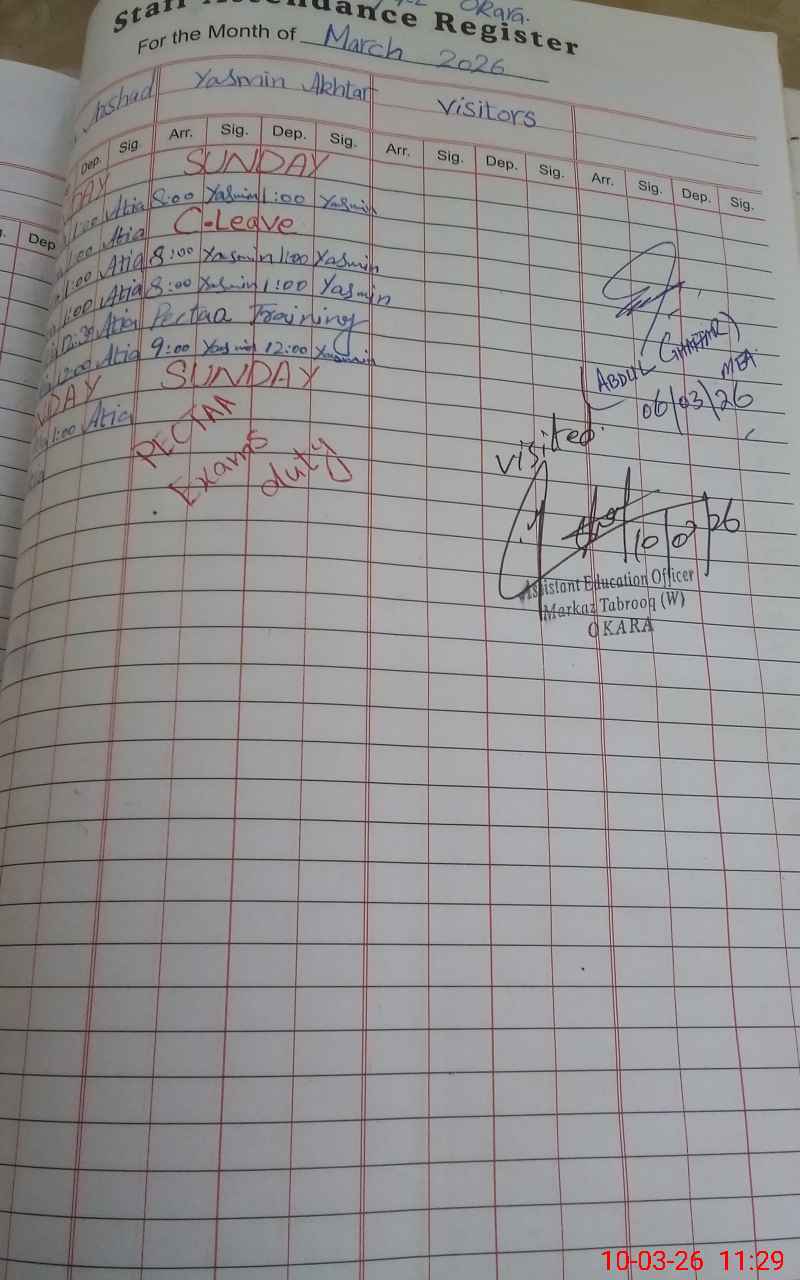 Okara.
Staff Attendance Register
For the Month of March 2026
Arshad Yasmin Akhtar Visitors
Dep. Sig. Arr. Sig. Dep. Sig. Arr. Sig. Dep. Sig. Arr. Sig. Dep. Sig.
Dep
SUNDAY
1:00 Atia 8:00 Yasmin 1:00 Yasmin
1:00 Atia C-Leave
1:00 Atia 8:00 Yasmin 1:00 Yasmin
1:00 Atia 8:00 Yasmin 1:00 Yasmin
12:30 Atia Pectaa Training
12:00 Atia 9:00 Yasmin 12:00 Yasmin
SUNDAY
1:00 Atia
PECTAA
Exams
duty
(ABDUL GHAFFAR)
MEA
06/03/26
visited.
10/03/26
Assistant Education Officer
Markaz Tabrooq (W)
OKARA
10-03-26 11:29